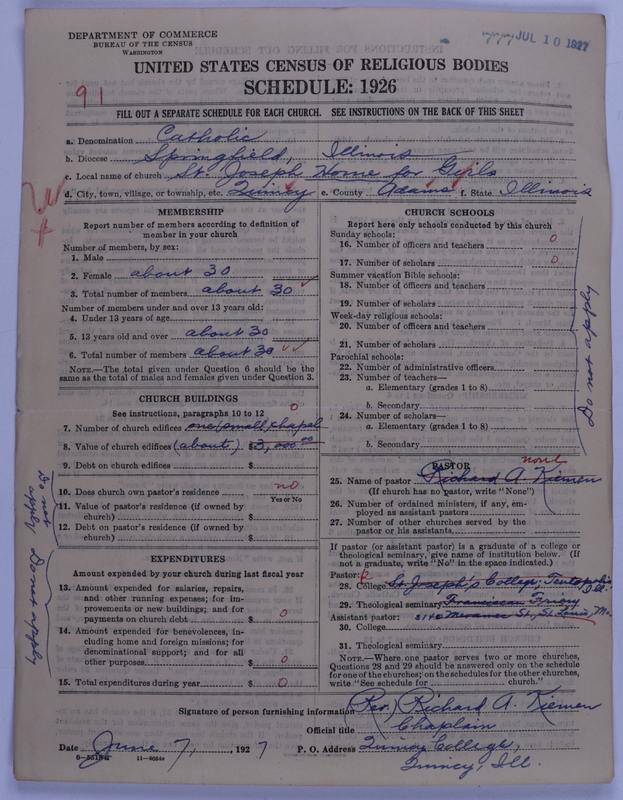 DEPARTMENT OF COMMERCE
BUREAU OF THE CENSUS
WASHINGTON
777 JUL 10 1927
UNITED STATES CENSUS OF RELIGIOUS BODIES
SCHEDULE: 1926
91
FILL OUT A SEPARATE SCHEDULE FOR EACH CHURCH. SEE INSTRUCTIONS ON THE BACK OF THIS SHEET
a. Denomination Catholic
b. Diocese Springfield, Illinois
c. Local name of church St. Joseph Home for Girls
d. City, town, village, or township, etc. Quincy e. County Adams f. State Illinois
MEMBERSHIP
Report number of members according to definition of
member in your church
Number of members, by sex:
1. Male
2. Female about 30
3. Total number of members about 30
Number of members under and over 13 years old:
4. Under 13 years of age
5. 13 years old and over about 30
6. Total number of members about 30
NOTE.—The total given under Question 6 should be the
same as the total of males and females given under Question 3.
CHURCH BUILDINGS
See instructions, paragraphs 10 to 12
0
7. Number of church edifices one (small) chapel
8. Value of church edifices (about) $ 3,000.00
9. Debt on church edifices $
10. Does church own pastor's residence no.
Yes or No
11. Value of pastor's residence (if owned by
church) $
12. Debt on pastor's residence (if owned by
church) $
Do not apply
Do not apply
EXPENDITURES
Amount expended by your church during last fiscal year
13. Amount expended for salaries, repairs,
and other running expenses; for im-
provements or new buildings; and for
payments on church debt $ 0
14. Amount expended for benevolences, in-
cluding home and foreign missions; for
denominational support; and for all
other purposes $ 0
15. Total expenditures during year $ 0
CHURCH SCHOOLS
Report here only schools conducted by this church
Sunday schools:
16. Number of officers and teachers 0
17. Number of scholars 0
Summer vacation Bible schools:
18. Number of officers and teachers
19. Number of scholars
Week-day religious schools:
20. Number of officers and teachers
21. Number of scholars
Parochial schools:
22. Number of administrative officers
23. Number of teachers—
a. Elementary (grades 1 to 8)
b. Secondary
24. Number of scholars—
a. Elementary (grades 1 to 8)
b. Secondary
Do not apply
PASTOR
none
25. Name of pastor Richard A. Kiemen
(If church has no pastor, write "None")
26. Number of ordained ministers, if any, em-
ployed as assistant pastors
27. Number of other churches served by the
pastor or his assistants
If pastor (or assistant pastor) is a graduate of a college or
theological seminary, give name of institution below. (If
not a graduate, write "No" in the space indicated.)
Pastor:
28. College St. Joseph's College, Teutopolis Ill.
29. Theological seminary Franciscan Priory
Assistant pastor: 3140 Meramec St., St. Louis, Mo.
30. College
31. Theological seminary
NOTE.—Where one pastor serves two or more churches,
Questions 28 and 29 should be answered only on the schedule
for one of the churches; on the schedules for the other churches,
write "See schedule for church."
Signature of person furnishing information (Rev.) Richard A. Kiemen
Official title Chaplain
Date June 7, 1927 P. O. Address Quincy College,
Quincy, Ill.